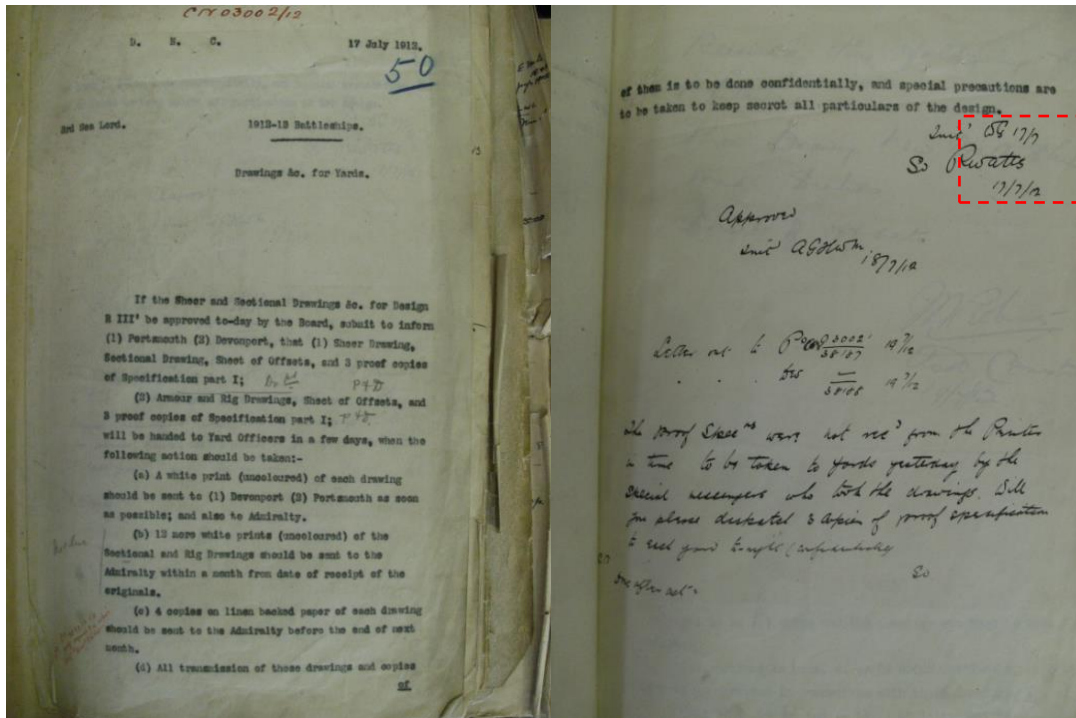 CN03002/12
D. N. C.
17 July 1912.
50
3rd Sea Lord.
1912-13 Battleships.
Drawings &c. for Yards.
If the Sheer and Sectional Drawings &c. for Design
R III' be approved to-day by the Board, submit to inform
(1) Portsmouth (2) Devonport, that (1) Sheer Drawing,
Sectional Drawing, Sheet of Offsets, and 3 proof copies
of Specification part I; P & D
(2) Armour and Rig Drawings, Sheet of Offsets, and
3 proof copies of Specification part I; P & D
will be handed to Yard Officers in a few days, when the
following action should be taken:-
(a) A white print (uncoloured) of each drawing
should be sent to (1) Devonport (2) Portsmouth as soon
as possible; and also to Admiralty.
(b) 12 more white prints (uncoloured) of the
Sectional and Rig Drawings should be sent to the
Admiralty within a month from date of receipt of the
originals.
(c) 4 copies on linen backed paper of each drawing
should be sent to the Admiralty before the end of next
month.
(d) All transmission of these drawings and copies
of
of them is to be done confidentially, and special precautions are
to be taken to keep secret all particulars of the design.
17/7
Sd PWatts
17/7/12
Approved
18/7/12
Letter out to 03002 19/7/12
38187
Dev 19/7/12
38188
The proof were not recd from the Printer
in time to be taken to yards yesterday by the
special messengers who took the drawings. Will
you please despatch 3 copies of proof specification
to each yard tonight (confidentially)
Sd